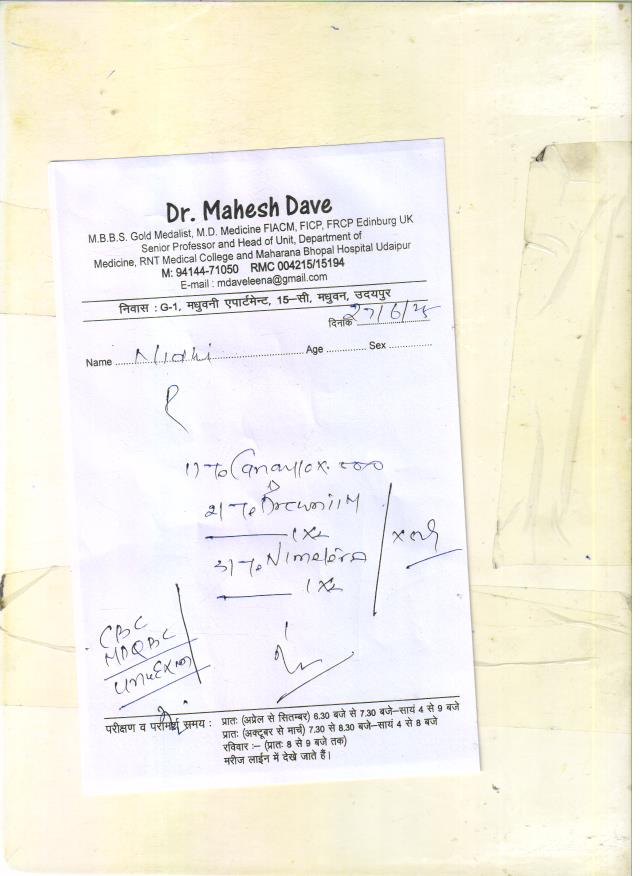 Dr. Mahesh Dave
M.B.B.S. Gold Medalist, M.D. Medicine FIACM, FICP, FRCP Edinburg UK
Senior Professor and Head of Unit, Department of
Medicine, RNT Medical College and Maharana Bhopal Hospital Udaipur
M: 94144-71050 RMC 004215/15194
E-mail : mdaveleena@gmail.com
निवास : G-1, मधुवनी एपार्टमेन्ट, 15–सी, मधुवन, उदयपुर
दिनांक
Name Nidhi Age Sex
1x2
1x2
CBC
परीक्षण व परामर्श समय : प्रातः (अप्रेल से सितम्बर) 6.30 बजे से 7.30 बजे–सायं 4 से 9 बजे
प्रातः (अक्टूबर से मार्च) 7.30 से 8.30 बजे–सायं 4 से 8 बजे
रविवार :– (प्रातः 8 से 9 बजे तक)
मरीज लाईन में देखे जाते हैं।